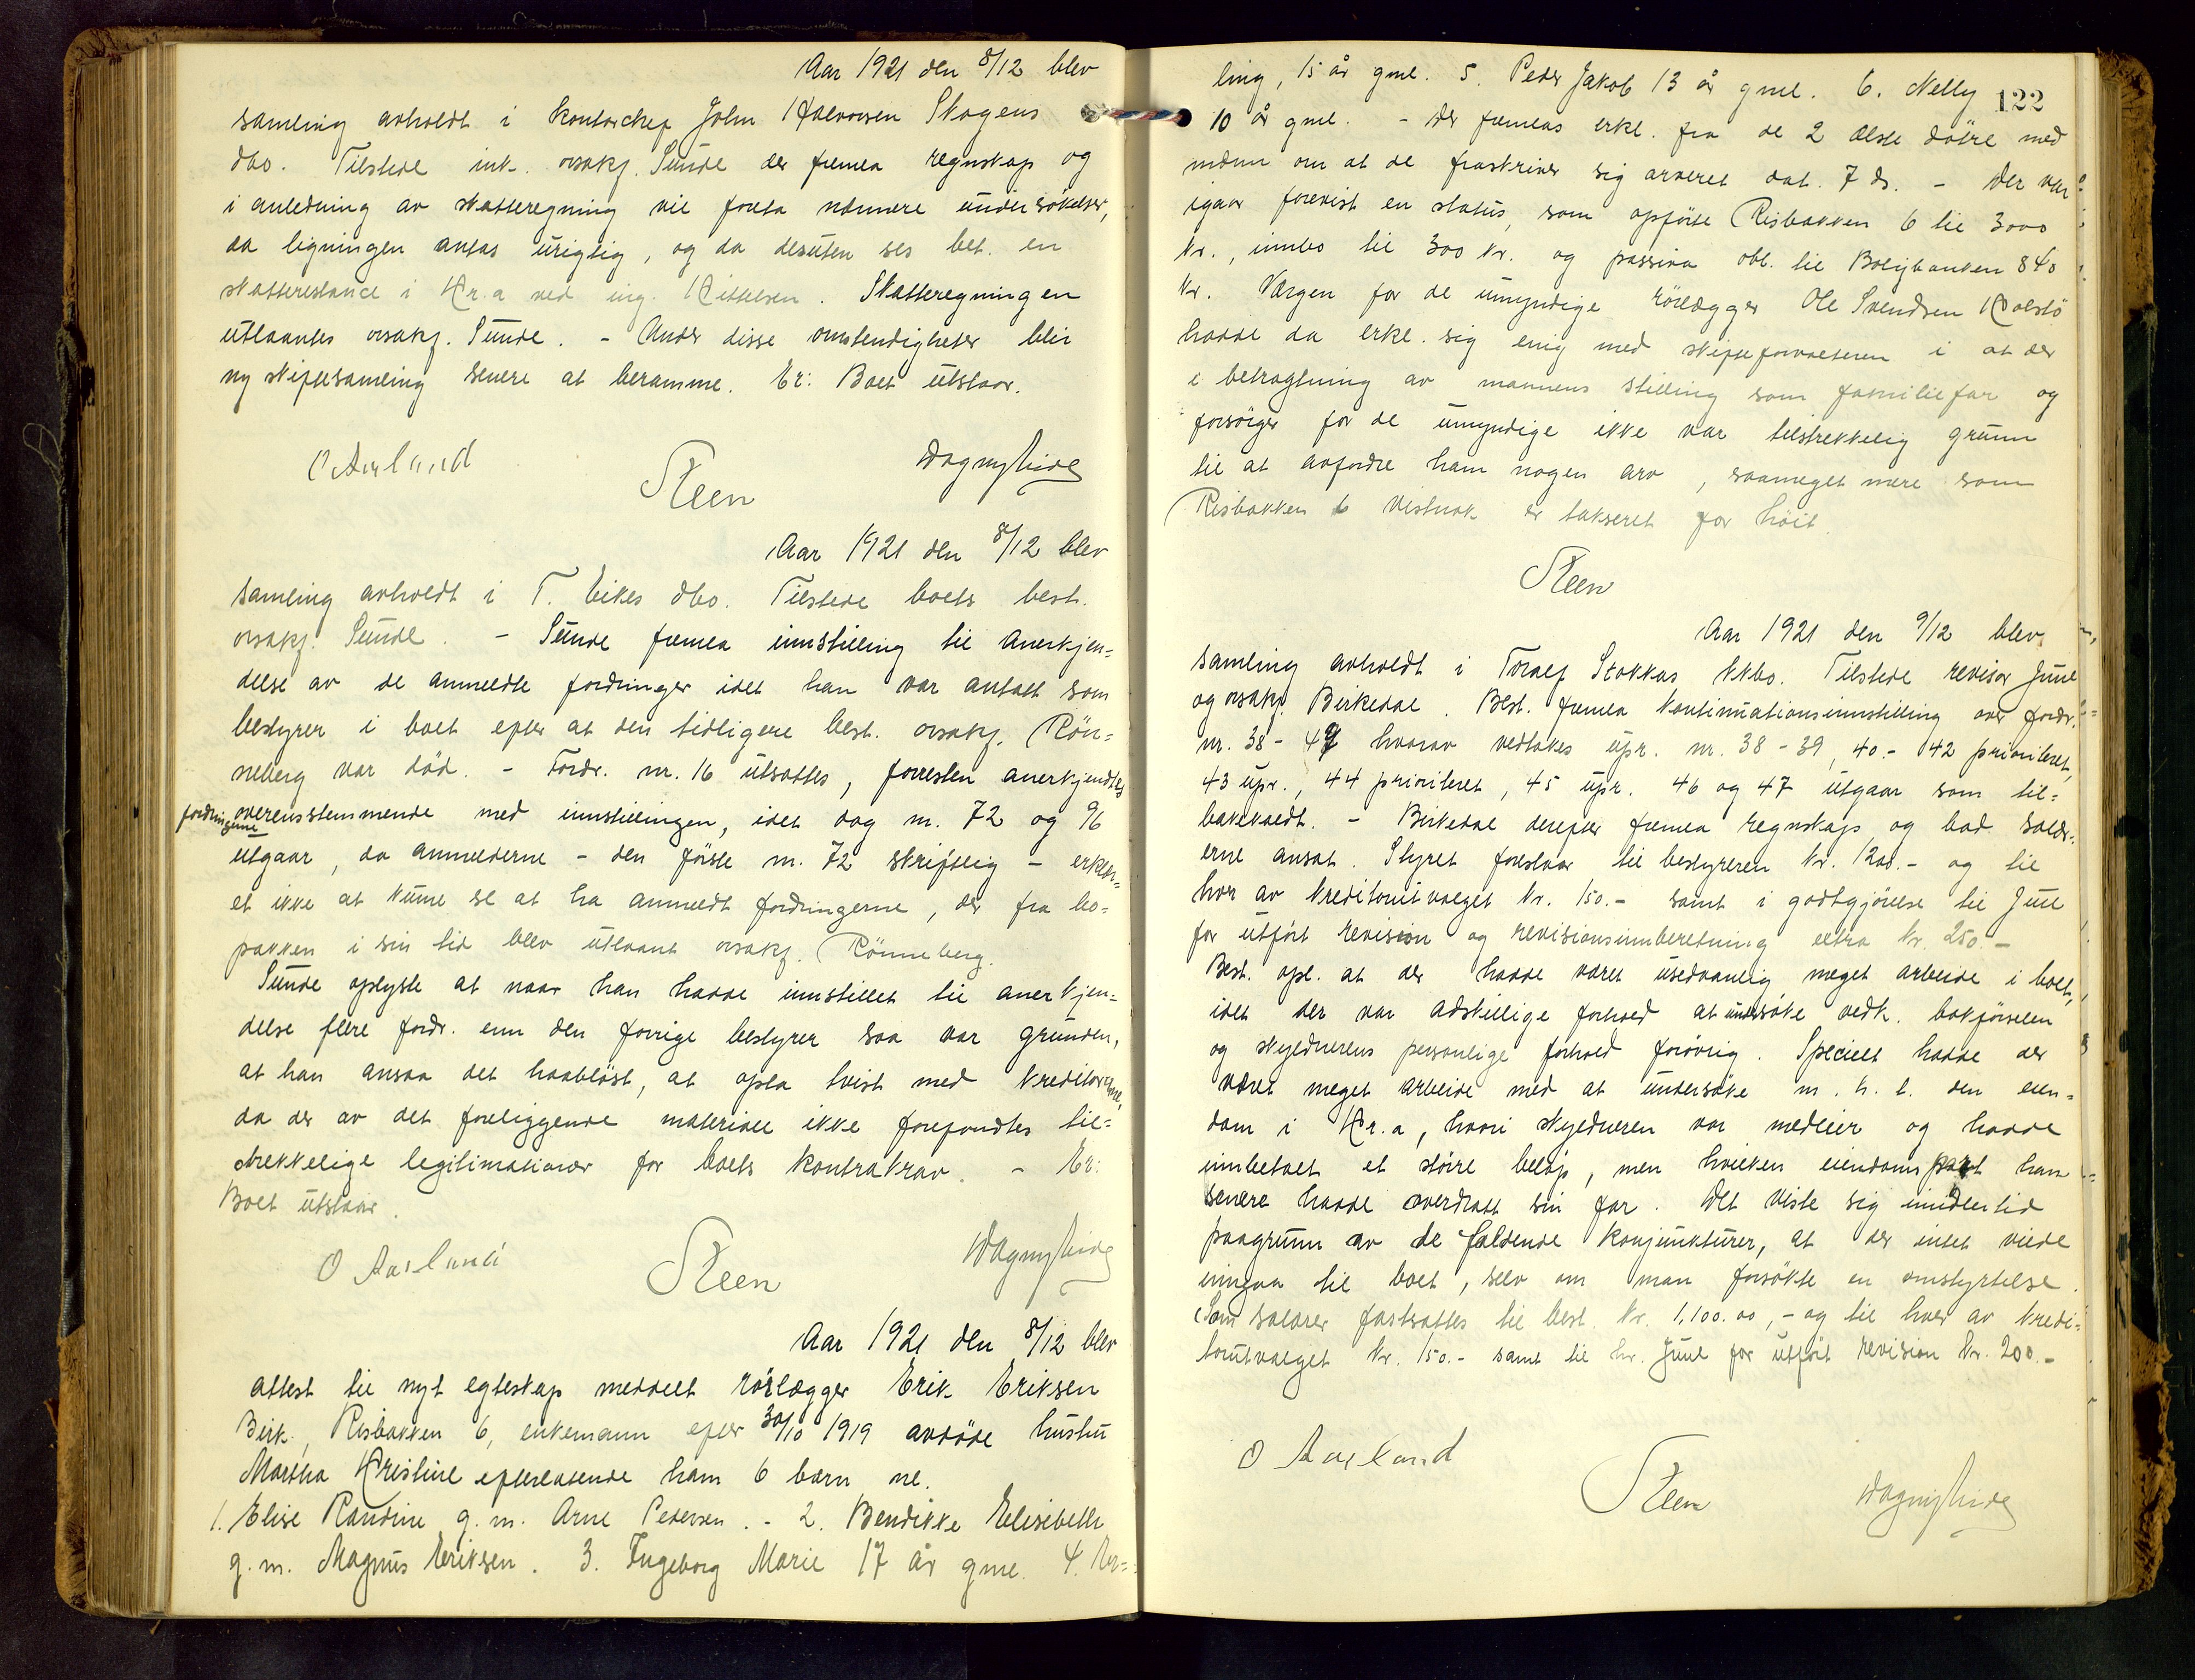 Aar 1921 den 8/12 blev
samling avholdt i kontorchef John Halvorsen Skogens
dbo. Tilstede int. orsakf. Sunde der fremla regnskap og
i anledning av skatteregning vil foreta nærmere undersökelser,
da ligningen antas urigtig, og da desuten ses bet. en
skatterestance i Kr.a ved ing. Kittelsen. Skatteregningen
utlaantes orsakf. Sunde. - Under disse omstendigheter blir
ny skiftesamling senere at beramme. Er: Boet utstaar.
O Aarland Steen Dagny
Aar 1921 den 8/12 blev
samling avholdt i T. Eikes dbo. Tilstede boets best.
orsakf. Sunde. - Sunde fremla innstilling til anerkjen=
delse av de anmeldte fordringer idet han var antatt som
bestyrer i boet efter at den tidligere best. orsakf. Rön=
neberg var död. - Fordr. nr. 16 utsattes, forresten anerkjendtes
fordringerne overensstemmende med innstillingen, idet dog nr. 72 og 96
utgaar, da anmelderne - den förste nr. 72 skriftlig - erklær=
et ikke at kunne se at ha anmeldt fordringerne, der fra bo=
pakken i sin tid blev utlaant orsakf. Rönneberg.
Sunde oplyste at naar han hadde innstillet til anerkjen=
delse flere fordr. enn den forrige bestyrer saa var grunden,
at han ansaa det haablöst, at opta tvist med kreditorerne,
da der av det foreliggende materiale ikke forefandtes til=
strekkelige legitimationer for boets kontrakrav. - Er:
Boet utstaar.
O Aarland Steen Dagny
Aar 1921 den 8/12 blev
attest til nyt egteskap meddelt rörlægger Erik Eriksen
Birk, Risbakken 6, enkemann efter 30/10 1919 avdöde hustru
Martha Kristine efterlatende ham 6 barn nl.
1. Elise Randine g.m. Arne Pedersen. - 2. Bendikke Elisebeth
g.m. Magnus Eriksen. 3. Ingeborg Marie 17 år gml. 4. Er=
122
ling, 15 år gml. 5. Peder Jakob 13 år gml. 6. Nelly
10 år gml. - Der fremlas erkl. fra de 2 ælste dötre med
mænn om at de fraskriver sig arveret dat. 7 ds. - Der var
igaar forevist en status, som opförte Risbakken 6 til 3000
kr., innbo til 300 kr. og passiva obl. til Boligbanken 840
kr. Værgen for de umyndige rörlægger Ole Svendsen Kolstö
hadde da erkl. sig enig med skifteforvalteren i at der
i betragtning av mannens stilling som familiefar og
forsörger for de umyndige ikke var tilstrekkelig grunn
til at avfordre ham nogen arv, saameget mere som
Risbakken 6 vistnok er takseret for höit.
Steen
Aar 1921 den 9/12 blev
samling avholdt i Toralf Stokkas kkbo. Tilstede revisor Juul
og orsakf. Birkedal. Best. fremla kontinuationsinnstilling over fordr.
nr. 38 - 47 hvorav vedtokes upr. nr. 38 - 39, 40 - 42 prioriteret,
43 upr., 44 prioriteret, 45 upr. 46 og 47 utgaar som til=
bakekaldt. - Birkedal derefter fremla regnskap og bad salær=
erne ansat. Styret foreslaar til bestyreren kr. 1200.- og til
hver av kreditorutvalget kr. 150.- samt i godtgjörelse til Juul
for utfört revision og revisionsinnberetning extra kr. 250.-
Best. opl. at der hadde været usedvanlig meget arbeide i boet,
idet der var adskillige forhold at undersöke vedk. bokförselen
og skyldnerens personlige forhold forövrig. Specielt hadde der
været meget arbeide med at undersöke m. h. t. den eien=
dom i Kr.a, hvori skyldneren var medeier og hadde
innbetalt et större belöp, men hvilken eiendomspart han
senere hadde overdratt sin far. Det viste sig imidlertid
paagrunn av de faldende konjunkturer, at der intet vilde
inngaa til boet, selv om man forsökte en omstyrtelse.
Som salærer fastsattes til best. kr. 1,100.00,- og til hver av kredi=
torutvalget kr. 150.- samt til hr. Juul for utfört revision kr. 200.-
O Aarland Steen Dagny